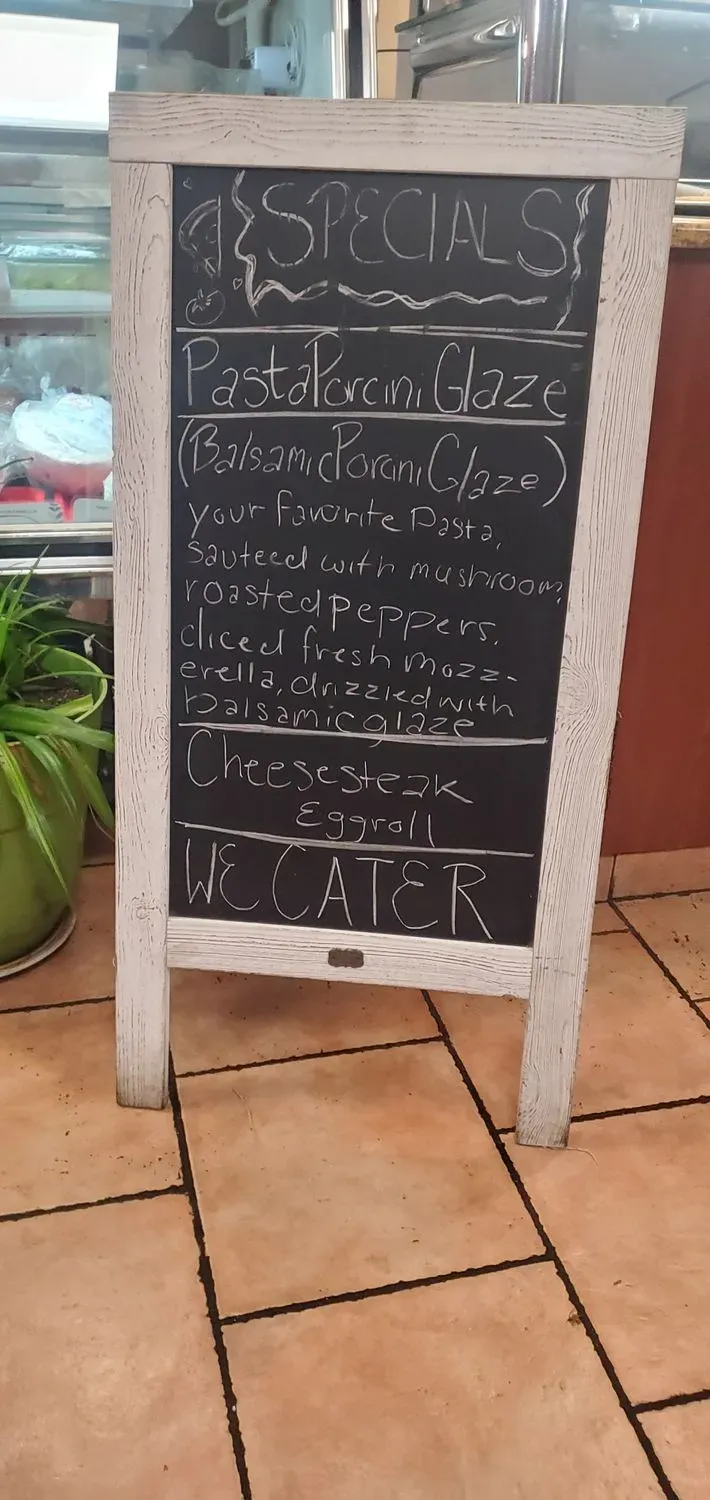 SPECIALS
Pasta Porcini Glaze
(Balsamic Porcini Glaze)
your favorite Pasta,
sauteed with mushroom,
roasted peppers,
diced fresh mozz-
erella, drizzled with
balsamic glaze
Cheesesteak
Eggroll
WE CATER